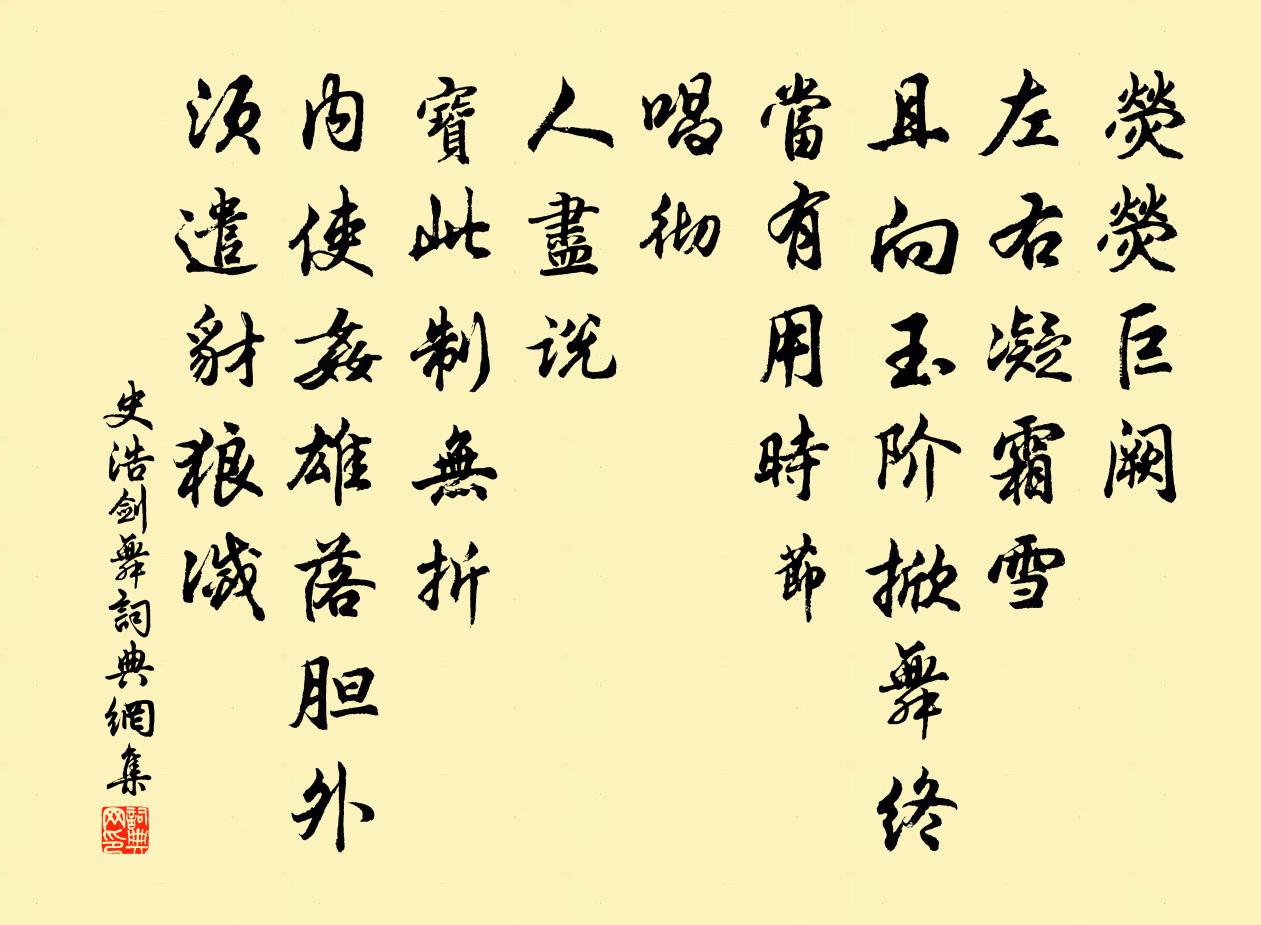 熒熒巨阙
左右凝霜雪
且向玉阶掀舞终
當有用時節
唱彻
人盡说
寶此制無折
内使姦雄落胆外
须遣豺狼滅
史浩剑舞詞典網集
詞典
网印